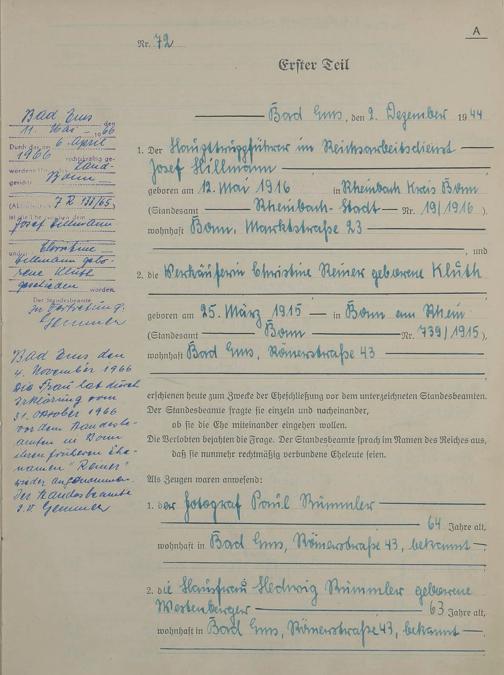 A
Nr. 72
Erster Teil
Bad Ems, den 2. Dezember 1944
1. Der Haupttruppführer im Reichsarbeitsdienst
Josef Hillmann
geboren am 12. Mai 1916 in Rheinbach Kreis Bonn
(Standesamt Rheinbach-Stadt Nr. 19/1916).
wohnhaft Bonn, Marktstraße 23
, und
2. die Verkäuferin Christine Reiner geborene Kluth
geboren am 25. März 1915 in Bonn am Rhein
(Standesamt Bonn Nr. 739/1915),
wohnhaft Bad Ems, Römerstraße 43
erschienen heute zum Zwecke der Eheschließung vor dem unterzeichneten Standesbeamten.
Der Standesbeamte fragte sie einzeln und nacheinander,
ob sie die Ehe miteinander eingehen wollen.
Die Verlobten bejahten die Frage. Der Standesbeamte sprach im Namen des Reiches aus,
daß sie nunmehr rechtmäßig verbundene Eheleute seien.
Als Zeugen waren anwesend:
1. der Fotograf Paul Rümmler
64 Jahre alt,
wohnhaft in Bad Ems, Römerstraße 43, bekannt
2. die Hausfrau Hedwig Rümmler geborene
Westenberger 63 Jahre alt,
wohnhaft in Bad Ems, Römerstraße 43, bekannt
Bad Ems den
11. Mai 1966
Durch das am 6. April
1966 rechtskräftig ge-
wordene Land-
gerichts
Bonn
7 R 181/65)
ist die Ehe zwischen dem
Josef Hillmann
und der Christine
Hillmann gebo-
rene Kluth
geschieden worden.
Der Standesbeamte
In Vertretung:
Gemmer
Bad Ems den
4. November 1966
Die Frau hat durch
Erklärung vom
31. Oktober 1966
vor dem Standesbe-
amten in Bonn
ihren früheren Ehe-
namen "Reiner"
wieder angenommen.
Der Standesbeamte
I.V. Gemmer